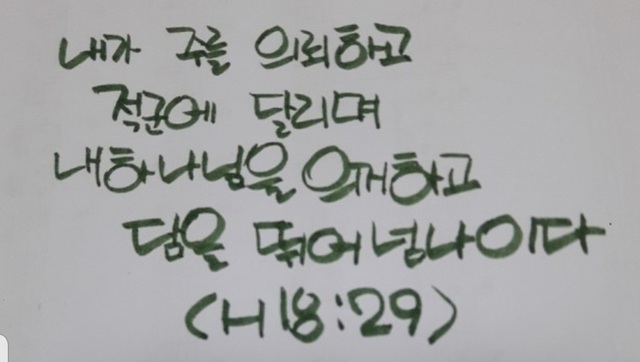 내가 주를 의뢰하고
적군에 달리며
내 하나님을 의지하고
담을 뛰어 넘나이다
(시18:29)